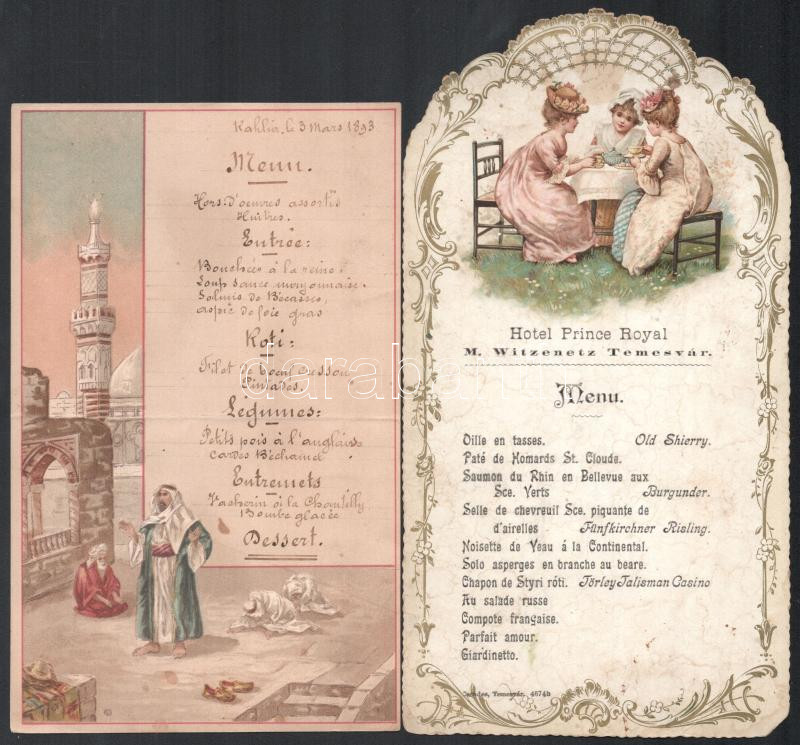 Kahlia, le 3 Mars 1893
Menu.
Hors-d'oeuvres assortis
Huîtres.
Entrée:
Bouchées à la reine.
Loup sauce mayonnaise.
Salmis de Bécasses,
aspic de foie gras
Roti:
Filet de boeuf cresson,
Pintades.
Legumes:
Petits pois à l'anglaise
cardes Béchamel
Entremets
Vacherin à la Chantilly
Bombe glacée
Dessert.
Hotel Prince Royal
M. Witzenetz Temesvár.
Menu.
Oille en tasses. Old Shierry.
Paté de Homards St. Cloude.
Saumon du Rhin en Bellevue aux
Sce. Verts Burgunder.
Selle de chevreuil Sce. piquante de
d'airelles Fünfkirchner Risling.
Noisette de Veau á la Continental.
Solo asperges en branche au beare.
Chapon de Styri róti. Törley Talisman Casino
Au salade russe
Compote française.
Parfait amour.
Giardinetto.
Temesvár. 4674b
darabanth